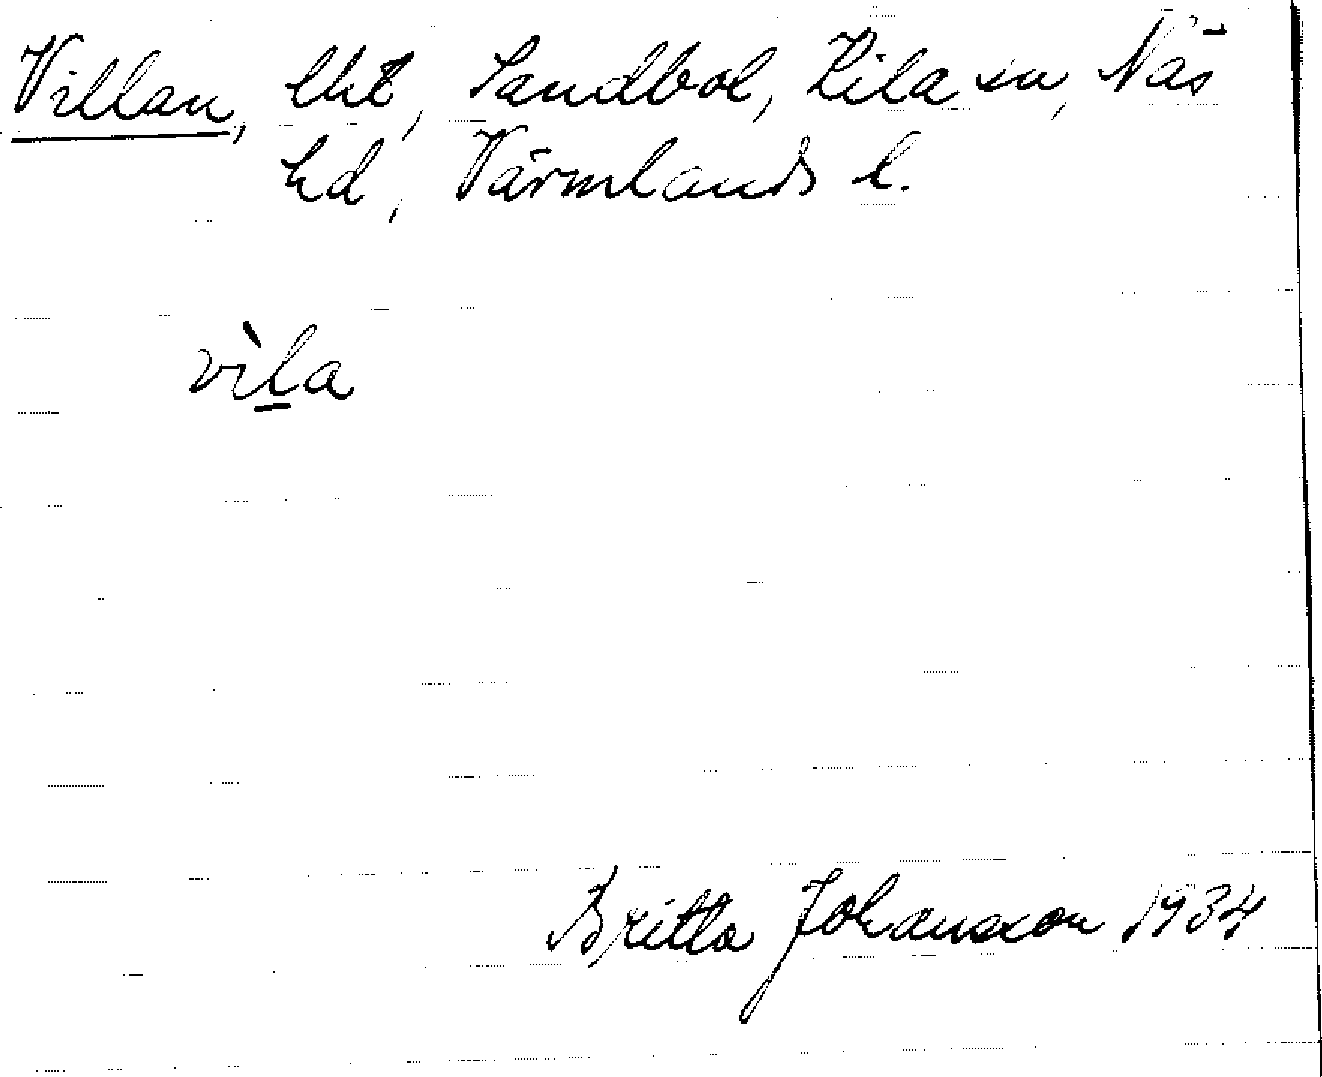 Villan, lht, Sandbol, Kila sn, Näs
hd, Värmlands l.
vìla
Britta Johansson 1934